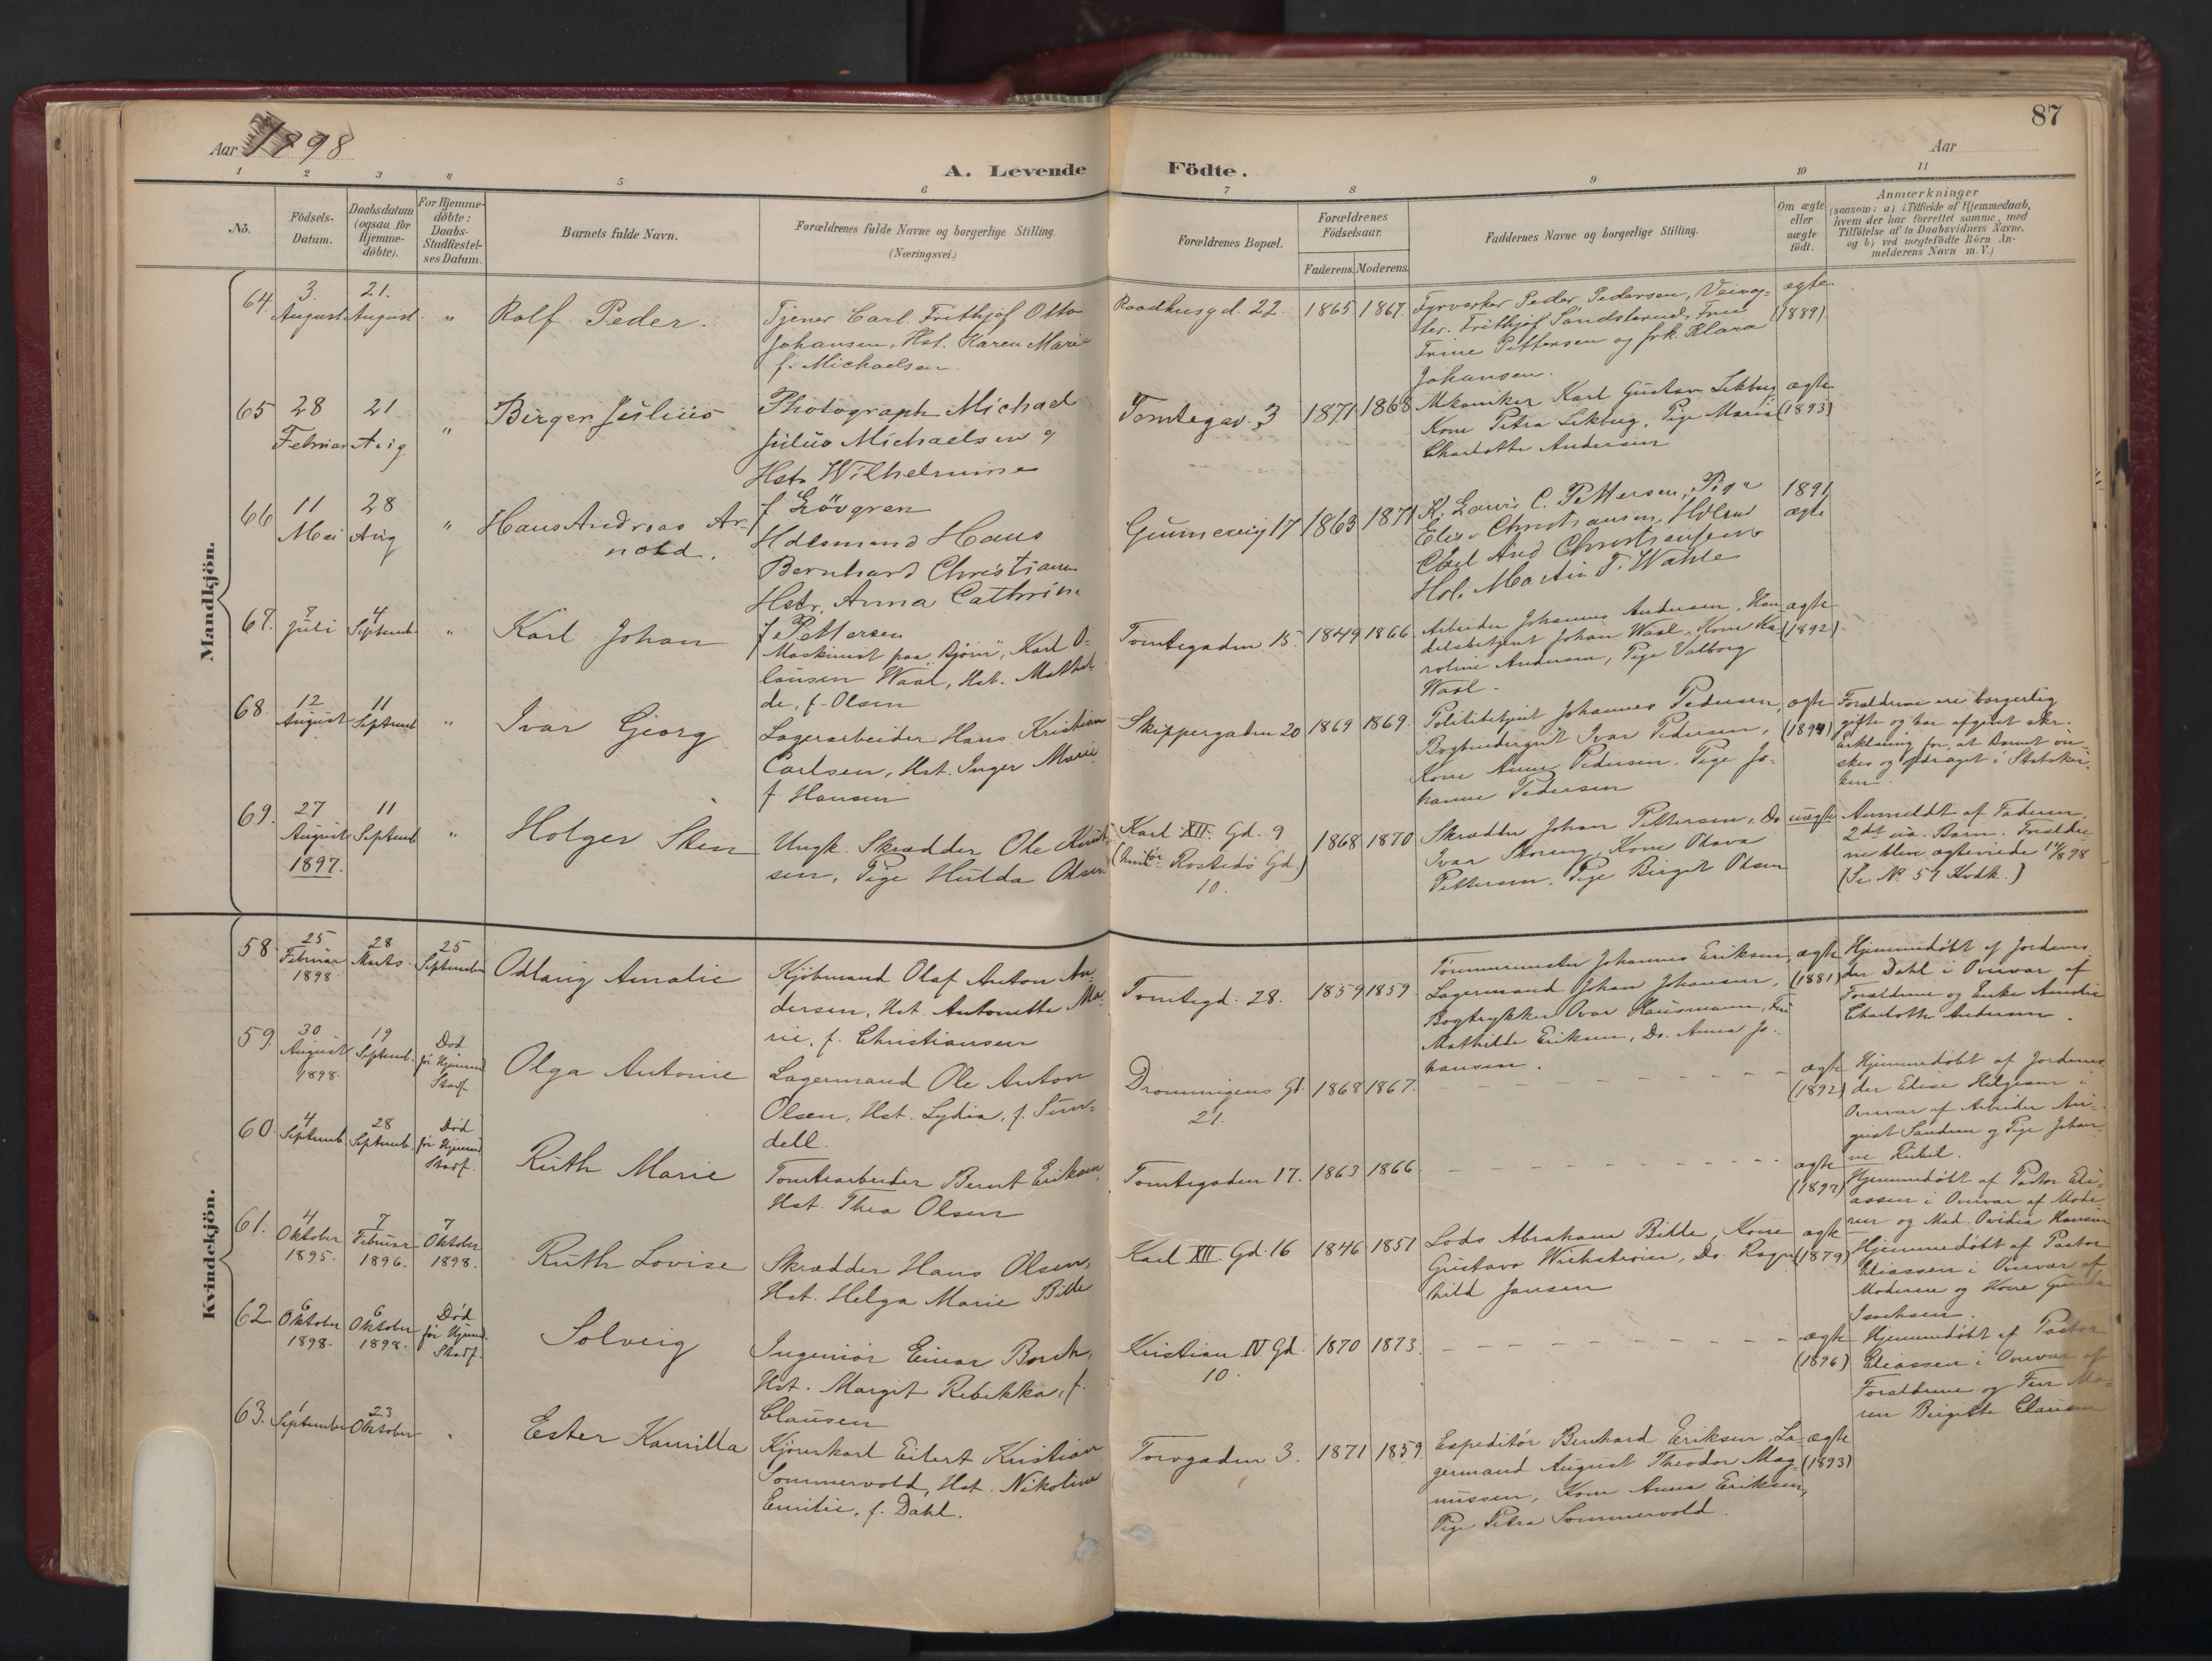 87
Aar 1898
Aar
A. Levende Födte.
1 2 3 4 5 6 7 8 9 10 11
No.
Födsels-
Datum.
Daabsdatum
(ogsaa for
Hjemme-
döbte).
For Hjemme-
döbte:
Daabs-
Stadfæstel-
ses Datum.
Barnets fulde Navn.
Forældrenes fulde Navne og borgerlige Stilling.
(Næringsvei.)
Forældrenes Bopæl.
Forældrenes
Födselsaar.
Faderens. Moderens.
Faddernes Navne og borgerlige Stilling.
Om ægte
eller
uægte
födt.
Anmærkninger
(saasom: a) i Tilfælde af Hjemmedaab,
hvem der har forrettet samme, med
Tilföielse af to Daabsvidners Navne,
og b) ved uægtefödte Börn An-
melderens Navn m. V.)
Mandkjön.
64. 3. August 21. August "
Rolf Peder.
Tjener Carl Frithjof Otto
Johansen, Hst. Karen Marie
f. Michaelsen
Raadhusgd. 22. 1865 1867.
Fyrverker Peder Pedersen,
Frithjof Sandsterud, Frue
Trine Pettersen og frk. Klara
Johansen.
ægte
(1889)
65 28 Februar 21 Aug "
Birger Julius
Photograph Michael
Julius Michaelsen og
Hstr Wilhelmine
f Lövgren
Tomtegad. 3 1871 1868
Mekaniker Karl Gustav Lekberg
Kone Petra Lekberg, Pige Maria
Charlotte Andersen
ægte
(1893)
66 11 Mai 28 Aug "
Hans Andreas Ar-
nold.
Hdlsmand Hans
Bernhard Christians
Hstr. Anna Cathrine
f Pettersen
17 1863 1871
K. Lovis C. Pettersen, Pige
Elise Christiansen,
And Christiansen
Martin T. Wahle
1891
ægte
67. 9 Juli 4 Septemb. "
Karl Johan
Maskinist paa "Björn", Karl O-
lausen Waal, Hst. Mathil-
de, f. Olsen
Tomtegaden 15. 1849 1866.
Arbeider Johannes Andersen, Han-
delsbetjent Johan Waal, Kone Ka-
roline Andersen, Pige Valborg
Waal.
ægte
(1892)
68. 12 August 11 Septemb "
Ivar Georg
Lagerarbeider Hans Kristian
Carlsen, Hst. Inger Marie
f. Hansen
Skippergaden 20 1869 1869.
Politibetjent Johannes Pedersen,
Bogbindersvt Ivar Pedersen,
Kone Anne Pedersen, Pige Jo-
hanne Pedersen
ægte
(1894)
Forældrene ere borgerlig
gifte og har afgivet skr.
Erklæring for, at Barnet ön-
skes opdraget i Statskir-
ken.
69. 27 August 1897. 11 Septemb "
Holger Sten
Ungk. Skrædder Ole Knud-
sen, Pige Hulda Olsen
Karl XII. Gd. 9
Rosteds Gd.)
10.
1868 1870
Skrædder Johan Pettersen, Do
Ivar Storeng, Kone Olava
Pettersen, Pige Birgit Olsen
uægte
Anmeldt af Faderen.
2det uæ. Barn. Forældre-
ne blev ægteviede 14/8 98
(Se No. 57 Kvdk.)
Kvindekjön.
58. 25 Februar 1898 28 Marts. 25 September
Odlaug Amalie
Kjöbmand Olaf Anton An-
dersen, Hst. Antonette Ma-
rie, f. Christiansen
Tomtegd. 28. 1859 1859.
Tömmermester Johannes Eriksen,
Lagermand Johan Johansen,
Bogtrykker Ovar Hausmann, Fru
Mathilde Eriksen, Do. Anna Jo-
hansen.
ægte
(1881)
Hjemmedöbt af Jordemo-
der Dahl i Overvær af
Forældrene og Enke Amalie
Charlotte Andersen.
59. 30 August 1898. 19 Septemb. Död
för Hjemmed
Stadf.
Olga Antonie
Lagermand Ole Anton
Olsen, Hst. Lydia, f. Sun-
dell.
Dronningens Gd.
21.
1868 1867.
ægte
(1892)
Hjemmedöbt af Jordemo-
der Elise Helgesen i
Overvær af Arbeider Au-
gust Sandem og Pige Johan-
ne Kubel.
60. 4 Septemb. 28 Septemb. Död
för Hjemmed
Stadf.
Ruth Marie
Tomtearbeider Bernt Eriksen,
Hst. Thea Olsen
Tomtegaden 17. 1863 1866
ægte
(1897)
Hjemmedöbt af Pastor Eli-
assen i Overvær af Mode-
ren og Mad. Ovidia Hansen
61. 4 Oktober 1895. 7 Februar 1896. 7 Oktober 1898.
Ruth Lovise
Skrædder Hans Olsen,
Hst. Helga Marie Bille
Karl XII. Gd. 16 1846 1851
Lods Abraham Bille, Kone
Gustava Wickström, Do. Ragn-
hild Jansen
ægte
(1879)
Hjemmedöbt af Pastor
Eliassen i Overvær af
Moderen og Kone Gunda
Isachsen.
62. 6 Oktober 1898. 6 Oktober 1898. Död
för Hjemd.
Stadf.
Solveig
Ingeniör Einar Borch,
Hst. Margit Rebekka, f.
Clausen
Kristian IV Gd.
10.
1870 1873.
ægte
(1896)
Hjemmedöbt af Pastor
Eliassen i Overvær af
Forældrene og Fru Ma-
ren Birgitte Clausen
63. 1 September 23 Oktober "
Ester Kamilla
Kjörerkarl Eilert Kristian
Sommervold, Hst. Nikoline
Emilie, f. Dahl.
Torvgaden 3. 1871 1859.
Expeditör Bernhard Eriksen, La-
germand August Theodor Mag-
nussen, Kone Anna Eriksen,
Pige Petra Sommervold.
ægte
(1893)